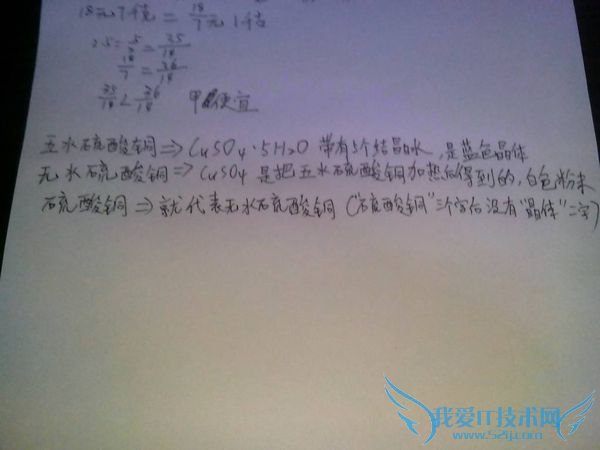 18元7千克 = 18/7元1千克
2.5=5/2=35/14
18/7=36/14
35/14<36/14 甲便宜
五水硫酸铜⇒CuSO4·5H2O 带有5个结晶水,是蓝色晶体
无水硫酸铜⇒CuSO4 是把五水硫酸铜加热后得到的,白色粉末
硫酸铜⇒就代表无水硫酸铜("硫酸铜"三个字后没有"晶体"二字)
我爱IT技术网
www.52ij.com